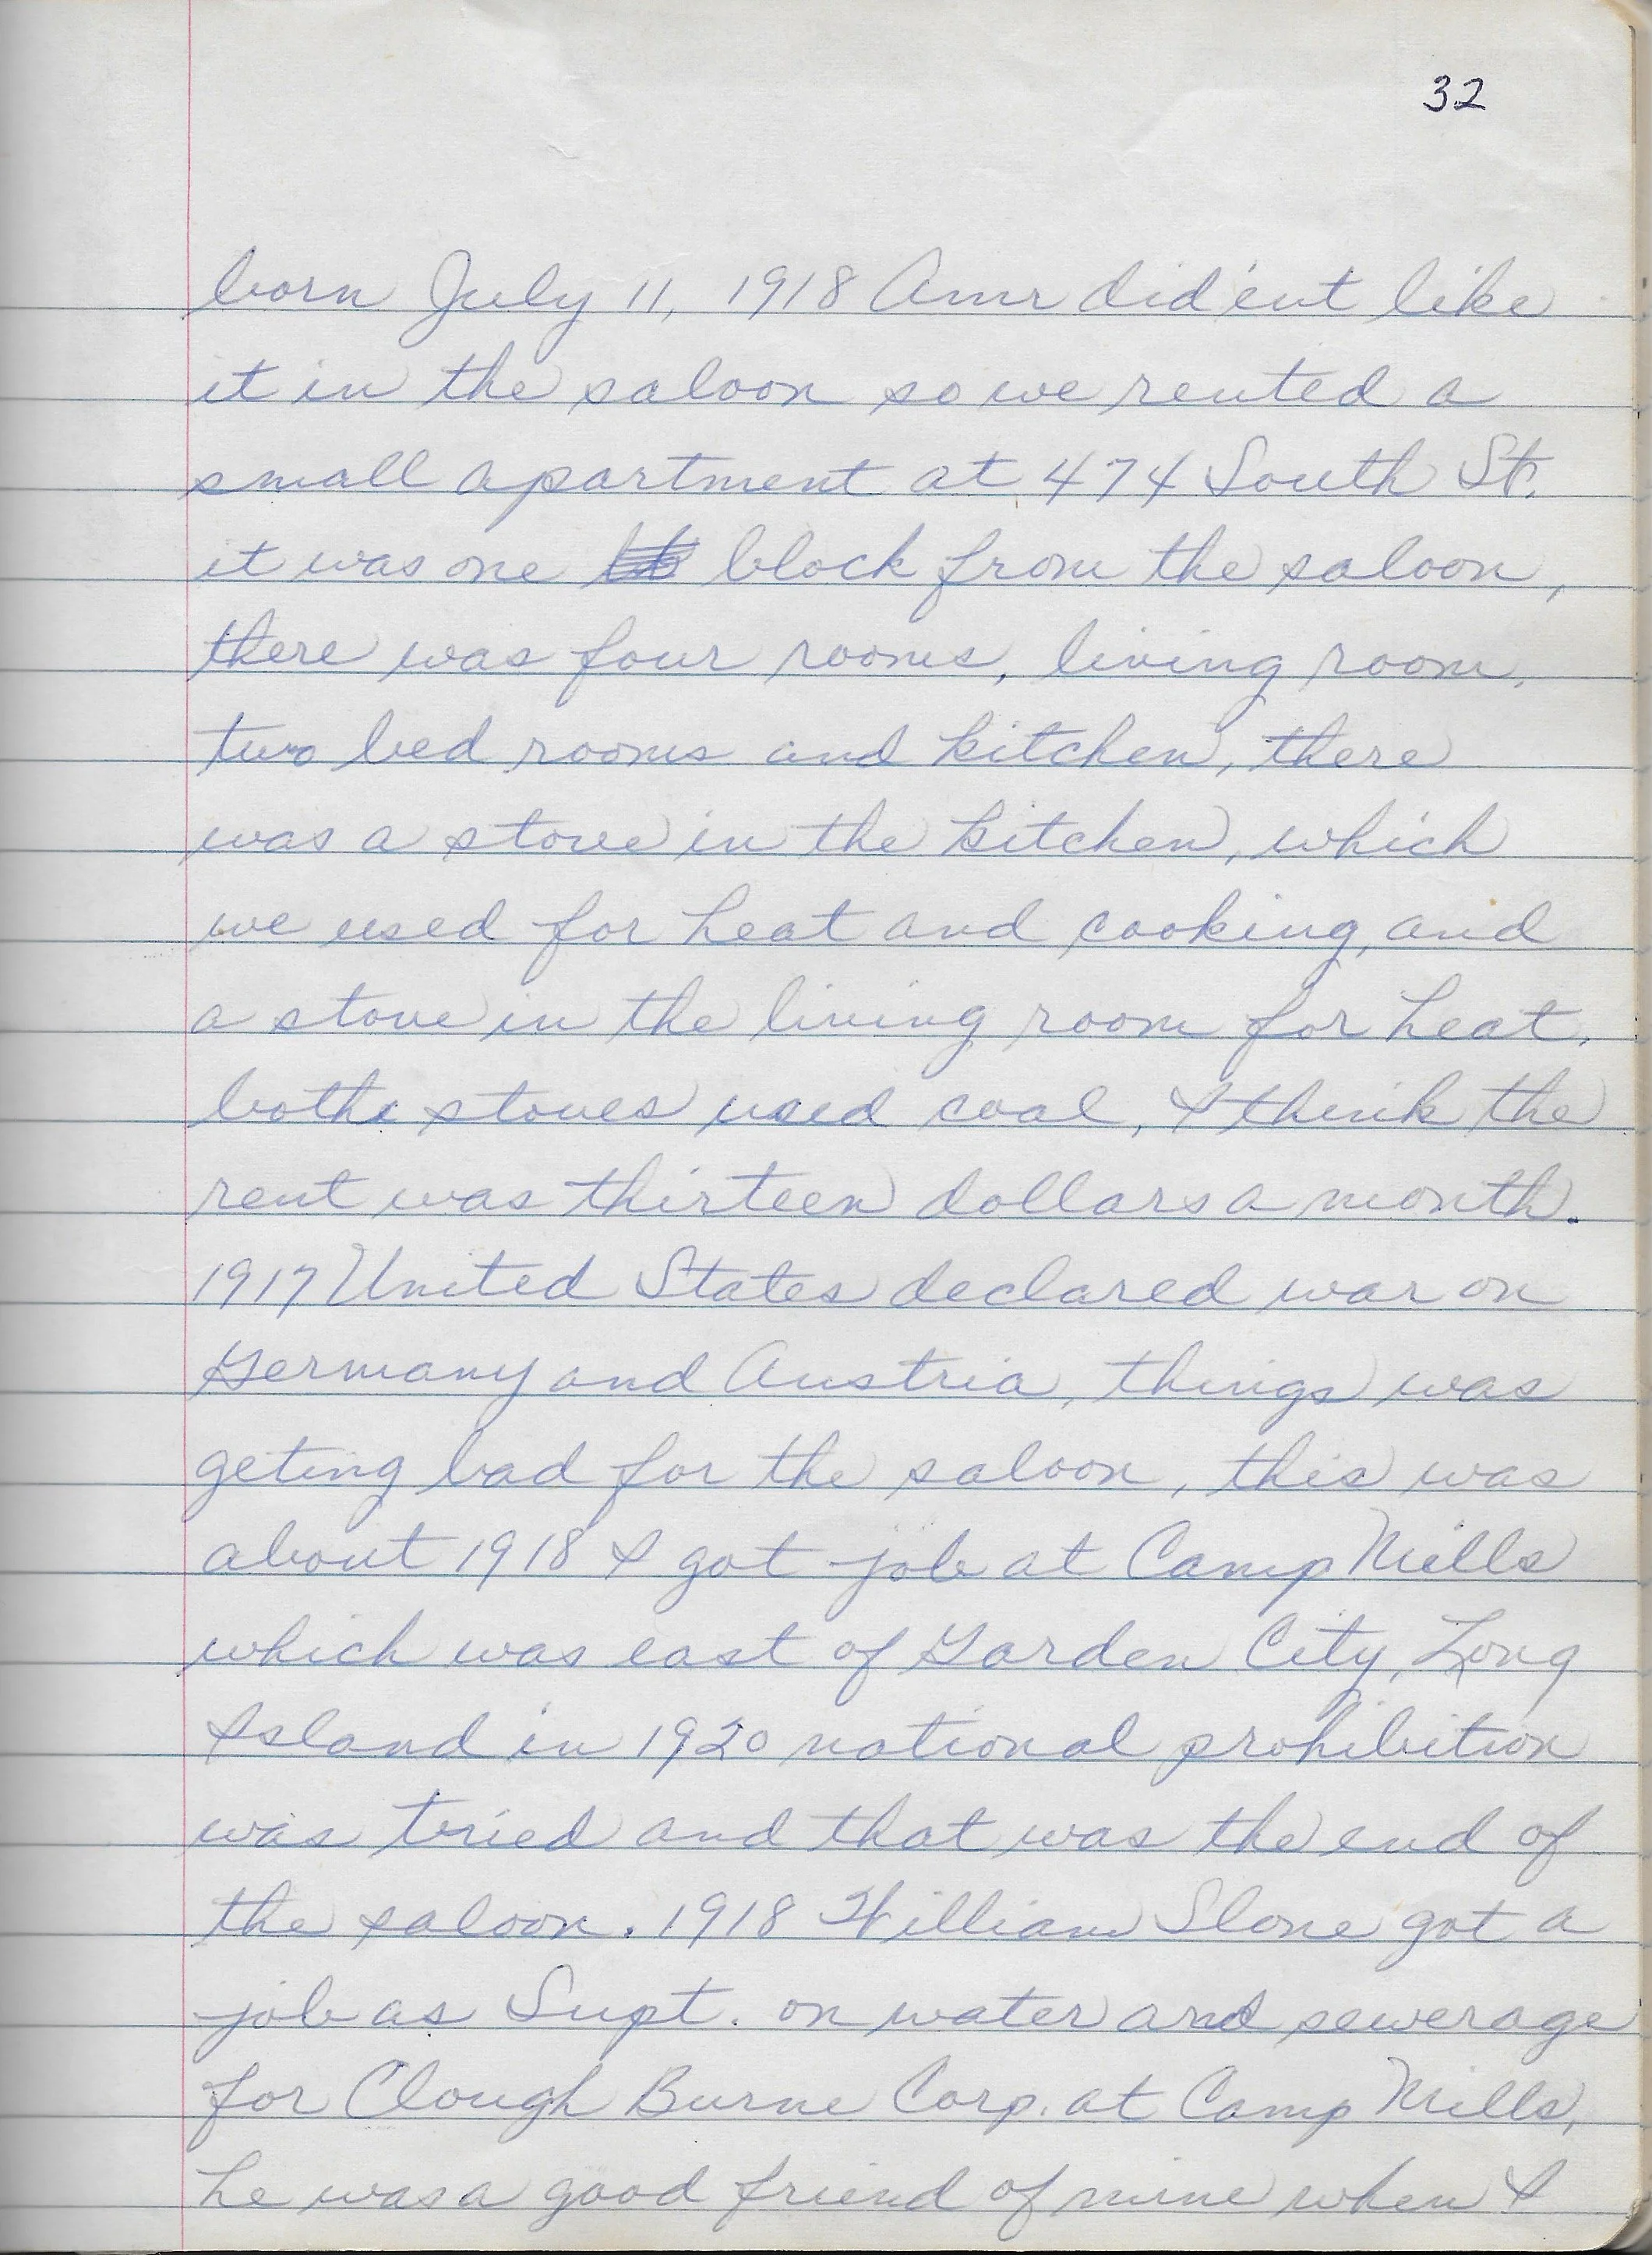 32
born July 11, 1918 Ann did'ent like
it in the saloon so we rented a
small apartment at 474 South St.
it was one block from the saloon,
there was four rooms, living room,
two bed rooms and kitchen, there
was a stove in the kitchen, which
we used for heat and cooking, and
a stove in the living room for heat,
bothe stoves used coal, I think the
rent was thirteen dollars a month.
1917 United States declared war on
Germany and Austria, things was
geting bad for the saloon, this was
about 1918 I got job at Camp Mills
which was east of Garden City, Long
Island in 1920 national prohibition
was tried and that was the end of
the saloon. 1918 William Slone got a
job as Supt. on water and sewerage
for Clough Burne Corp. at Camp Mills,
he was a good friend of mine when I